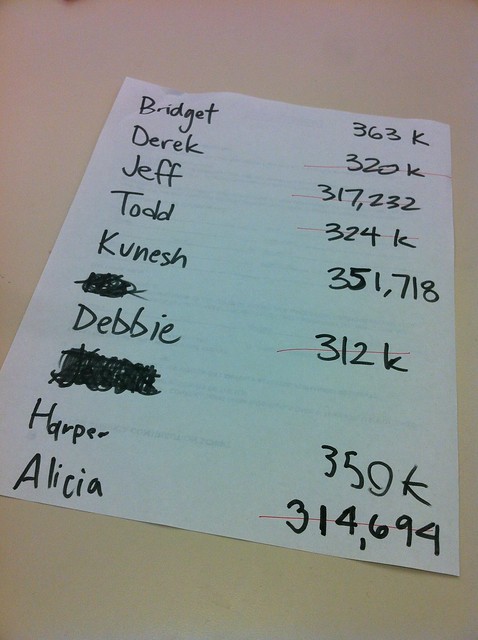 Bridget 363 K
Derek 320 K
Jeff 317,232
Todd 324 K
Kunesh 351,718
Debbie 312 K
Harper 350 K
Alicia 314,694